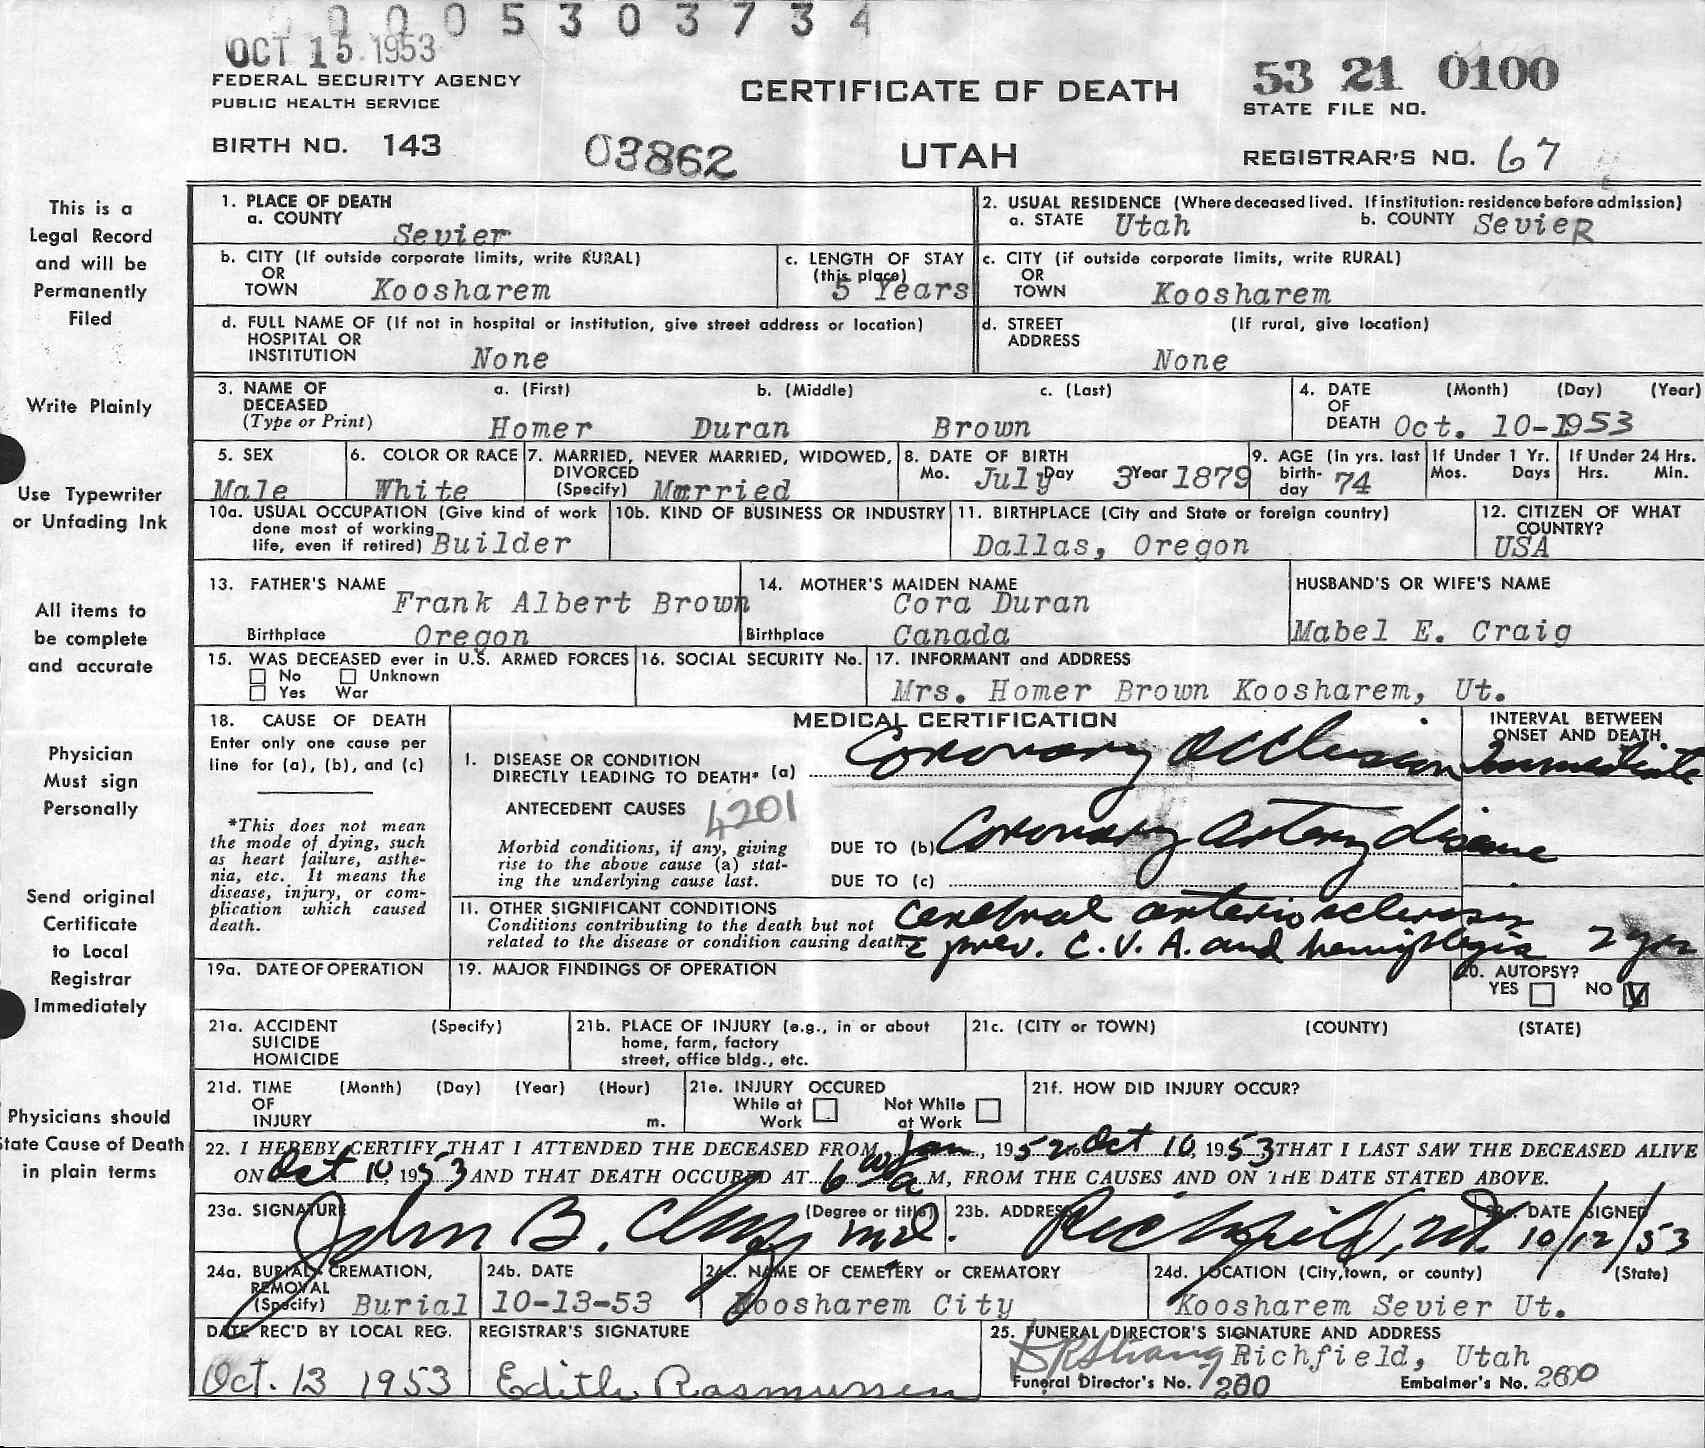 0005303734
OCT 15 1953
FEDERAL SECURITY AGENCY
PUBLIC HEALTH SERVICE
CERTIFICATE OF DEATH
53 21 0100
STATE FILE NO.
BIRTH NO. 143
03862
UTAH
REGISTRAR'S NO. 67
This is a
Legal Record
and will be
Permanently
Filed
Write Plainly
Use Typewriter
or Unfading Ink
All items to
be complete
and accurate
Physician
Must sign
Personally
Send original
Certificate
to Local
Registrar
Immediately
Physicians should
State Cause of Death
in plain terms
1. PLACE OF DEATH
a. COUNTY Sevier
2. USUAL RESIDENCE (Where deceased lived. If institution: residence before admission)
a. STATE Utah b. COUNTY Sevier
b. CITY (If outside corporate limits, write RURAL)
OR
TOWN Koosharem
c. LENGTH OF STAY
(this place)
5 Years
c. CITY (if outside corporate limits, write RURAL)
OR
TOWN Koosharem
d. FULL NAME OF (If not in hospital or institution, give street address or location)
HOSPITAL OR
INSTITUTION None
d. STREET (If rural, give location)
ADDRESS
None
3. NAME OF a. (First) b. (Middle) c. (Last)
DECEASED
(Type or Print) Homer Duran Brown
4. DATE (Month) (Day) (Year)
OF
DEATH Oct. 10-1953
5. SEX
Male
6. COLOR OR RACE
White
7. MARRIED, NEVER MARRIED, WIDOWED,
DIVORCED
(Specify) Married
8. DATE OF BIRTH
Mo. July Day 3 Year 1879
9. AGE (in yrs. last
birth-
day 74
If Under 1 Yr.
Mos. Days
If Under 24 Hrs.
Hrs. Min.
10a. USUAL OCCUPATION (Give kind of work
done most of working
life, even if retired) Builder
10b. KIND OF BUSINESS OR INDUSTRY
11. BIRTHPLACE (City and State or foreign country)
Dallas, Oregon
12. CITIZEN OF WHAT
COUNTRY?
USA
13. FATHER'S NAME
Frank Albert Brown
Birthplace Oregon
14. MOTHER'S MAIDEN NAME
Cora Duran
Birthplace Canada
HUSBAND'S OR WIFE'S NAME
Mabel E. Craig
15. WAS DECEASED ever in U.S. ARMED FORCES
No Unknown
Yes War
16. SOCIAL SECURITY No.
17. INFORMANT and ADDRESS
Mrs. Homer Brown Koosharem, Ut.
18. CAUSE OF DEATH
Enter only one cause per
line for (a), (b), and (c)
*This does not mean
the mode of dying, such
as heart failure, asthe-
nia, etc. It means the
disease, injury, or com-
plication which caused
death.
MEDICAL CERTIFICATION
INTERVAL BETWEEN
ONSET AND DEATH
1. DISEASE OR CONDITION
DIRECTLY LEADING TO DEATH* (a) Coronary Occlusion Immediate
ANTECEDENT CAUSES 4201
Morbid conditions, if any, giving
rise to the above cause (a) stat-
ing the underlying cause last.
DUE TO (b) Coronary artery disease
DUE TO (c)
11. OTHER SIGNIFICANT CONDITIONS
Conditions contributing to the death but not
related to the disease or condition causing death.
Cerebral arteriosclerosis
c̄ prev. C.V.A. and hemiplegia 2 yrs
19a. DATE OF OPERATION
19. MAJOR FINDINGS OF OPERATION
20. AUTOPSY?
YES NO V
21a. ACCIDENT (Specify)
SUICIDE
HOMICIDE
21b. PLACE OF INJURY (e.g., in or about
home, farm, factory
street, office bldg., etc.
21c. (CITY or TOWN) (COUNTY) (STATE)
21d. TIME (Month) (Day) (Year) (Hour)
OF
INJURY m.
21e. INJURY OCCURED
While at Work
Not While at Work
21f. HOW DID INJURY OCCUR?
22. I HEREBY CERTIFY THAT I ATTENDED THE DECEASED FROM Jan, 1952 to Oct 10, 1953 THAT I LAST SAW THE DECEASED ALIVE
ON Oct 10, 1953 AND THAT DEATH OCCURED AT 6 a M, FROM THE CAUSES AND ON THE DATE STATED ABOVE.
23a. SIGNATURE (Degree or title)
John B. M.D.
23b. ADDRESS
Richfield, Ut.
23c. DATE SIGNED
10/12/53
24a. BURIAL, CREMATION,
REMOVAL
(Specify) Burial
24b. DATE
10-13-53
24c. NAME OF CEMETERY or CREMATORY
Koosharem City
24d. LOCATION (City, town, or county) (State)
Koosharem Sevier Ut.
DATE REC'D BY LOCAL REG.
Oct. 13 1953
REGISTRAR'S SIGNATURE
Edith Rasmussen
25. FUNERAL DIRECTOR'S SIGNATURE AND ADDRESS
Richfield, Utah
Funeral Director's No. 200
Embalmer's No. 260